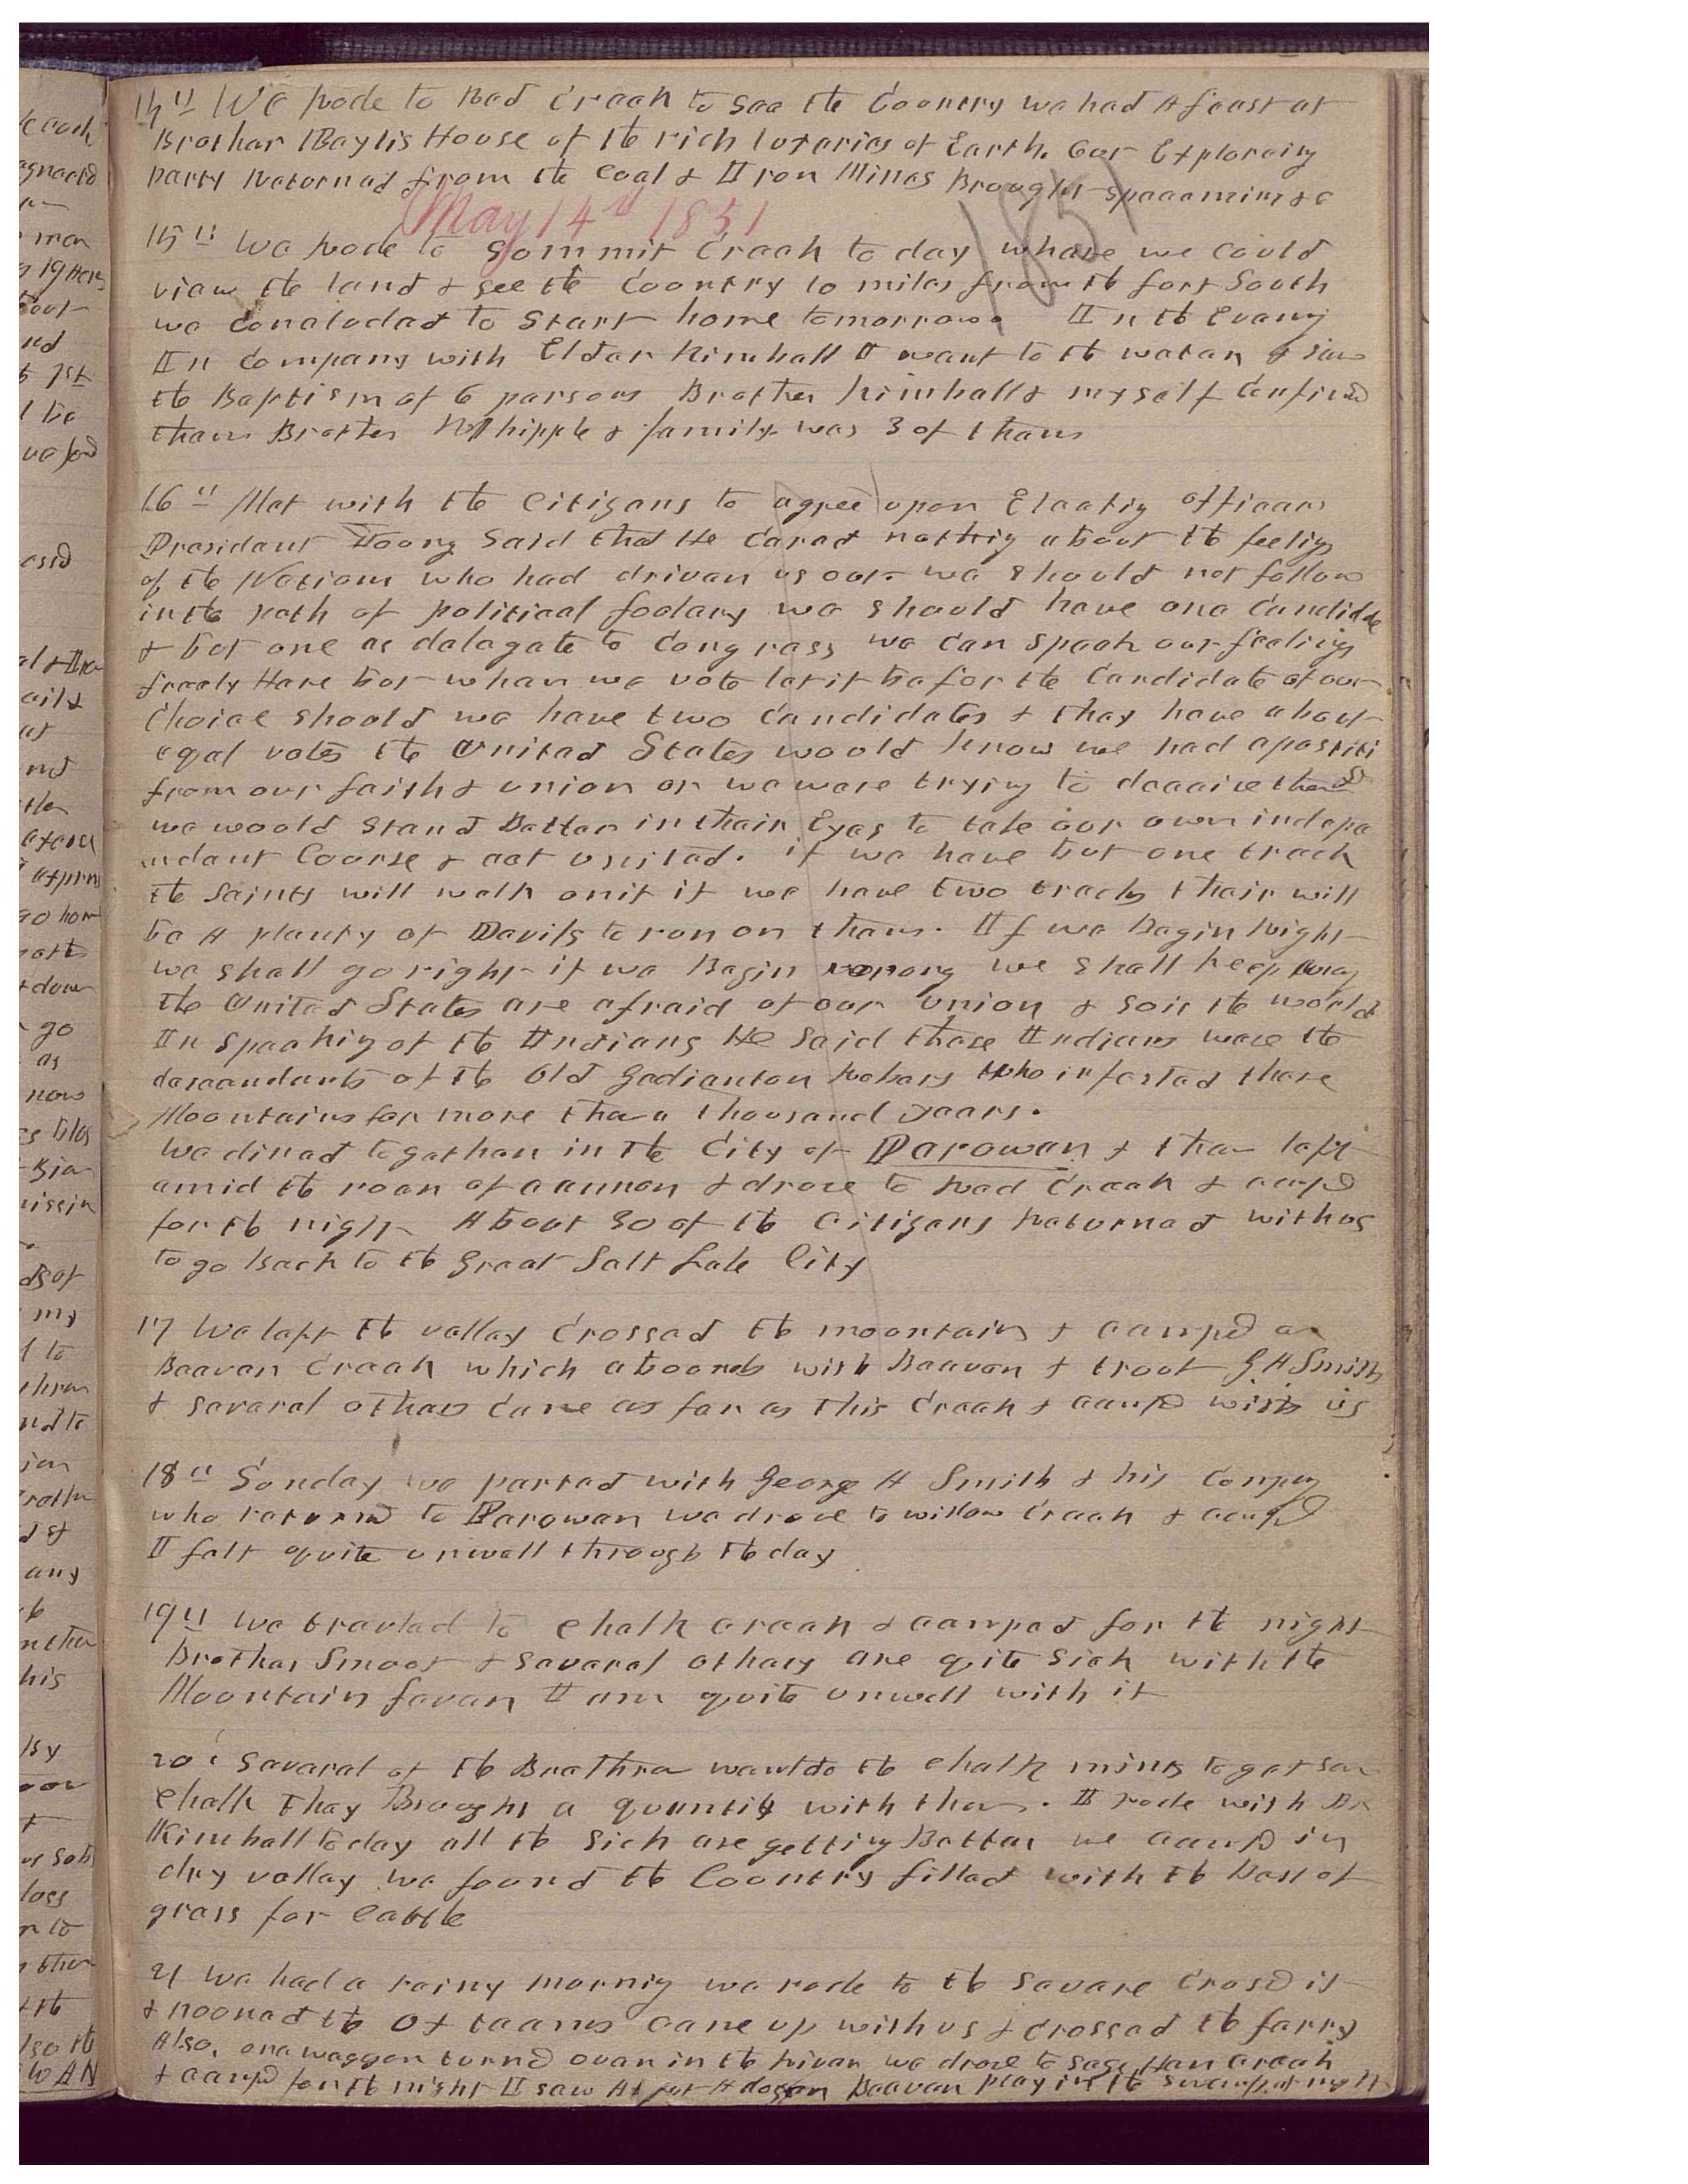 14th We Rode to Red Creek to see the Country we had A feast at
Brother Baylis House of the rich luxaries of Earth. Our Exploreing
party Returned from the Coal & Iron Mines Brought specemins &c
May 14th 1851
1851
15th We Rode to Summit Creek to day whare we could
view the land & see the Country 10 miles from the fort South
we concluded to Start home tomorrow. In the Evenig
In Company with Elder Kimball I went to the water & saw
the Baptism of 6 persons Brother Kimball & myself Confirmd
them Brother Whipple & family was 3 of them
16th Met with the Citizens to agree upon Electig officers
President Young Said that He Cared nothig about the feeligs
of the Nations who had driven us out. we should not follow
in the path of political foolery we should have one Candidate
& but one as delegate to Congress we can speak our feeligs
freely Here but when we vote let it be for the Candidate of our
Choice should we have two Candidates & they have about
equal votes the United States would know we had apostitized
from our faith & union or we ware trying to decaive them &
we would Stand Better in their Eyes to take our own indepe
ndant Course & act united. if we have but one track
the Saints will walk on it if we have two tracks thair will
be A plenty of Devils to run on them. If we Begin Right
we shall go right if we Begin wrong we shall keep wrong
the United States are afraid of our union & so is the world
In speakig of the Indians He said those Indians ware the
descendants of the Old Gadianton Robers who infested these
Mountains for more than a thousand years.
We dined together in the City of Parowan & then left
amid the roar of cannon & drove to Red Creek & campd
for the night About 30 of the Citizens Returned with us
to go back to the Great Salt Lake City
17 We left the valley Crossed the mountains & campd on
Beaver Creek which abounds with Beaver & trout G A Smith
& several others Came as far as this Creek & campd with us
18th Sunday we parted with George A Smith & his Company
who returnd to Parowan we drove to willow Creek & campd
I felt quite unwell through the day
19th We traveled to Chalk Creek & camped for the night
Brother Smoot & several others are quite Sick with the
Mountain fever I am quite unwell with it
20th Several of the Brethren went to the chalk mines to get some
chalk They Brought a quantity with them. I rode with Br
Kimball today all the Sick are getting Better we campd in
dry valley we found the Country filled with the Best of
grass for cattle
21 We had a rainy mornig we rode to the Savare Crosd it
& nooned the Ox teams came up with us & Crossed the ferry
Also, one waggon turnd over in the River we drove to Sage Hen creek
& campd for the night I saw At just A dozen Beaver play in the swamp at night